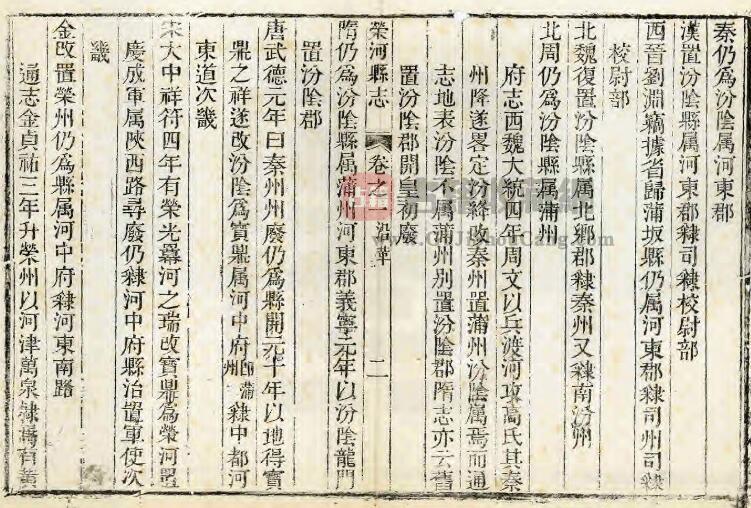 秦仍爲汾陰屬河東郡
漢置汾陰縣屬河東郡隸司隸校尉部
西晉劉淵竊據省歸蒲坂縣仍屬河東郡隸司州司隸
校尉部
北魏復置汾陰縣屬北鄉郡隸秦州又隸南汾州
北周仍爲汾陰縣屬蒲州
府志西魏大統四年周文以兵渡河攻高氏其秦
州降遂畧定汾絳改秦州置蒲州汾陰屬焉而通
志地表汾陰不屬蒲州别置汾陰郡隋志亦云舊
置汾陰郡開皇初廢
榮河縣志 卷之一 沿革 二
隋仍爲汾陰縣屬蒲州河東郡義寧元年以汾陰龍門
置汾陰郡
唐武德元年曰泰州州廢仍爲縣開元十年以地得寶
鼎之祥遂改汾陰爲寶鼎屬河中府卽蒲州隸中都河
東道次畿
宋大中祥符四年有榮光羃河之瑞改寶鼎爲榮河置
慶成軍属陝西路尋廢仍隸河中府縣治置軍使次
畿
金改置榮州仍爲縣屬河中府隸河東南路
通志金貞祐三年升榮州以河津萬泉隸焉有黃